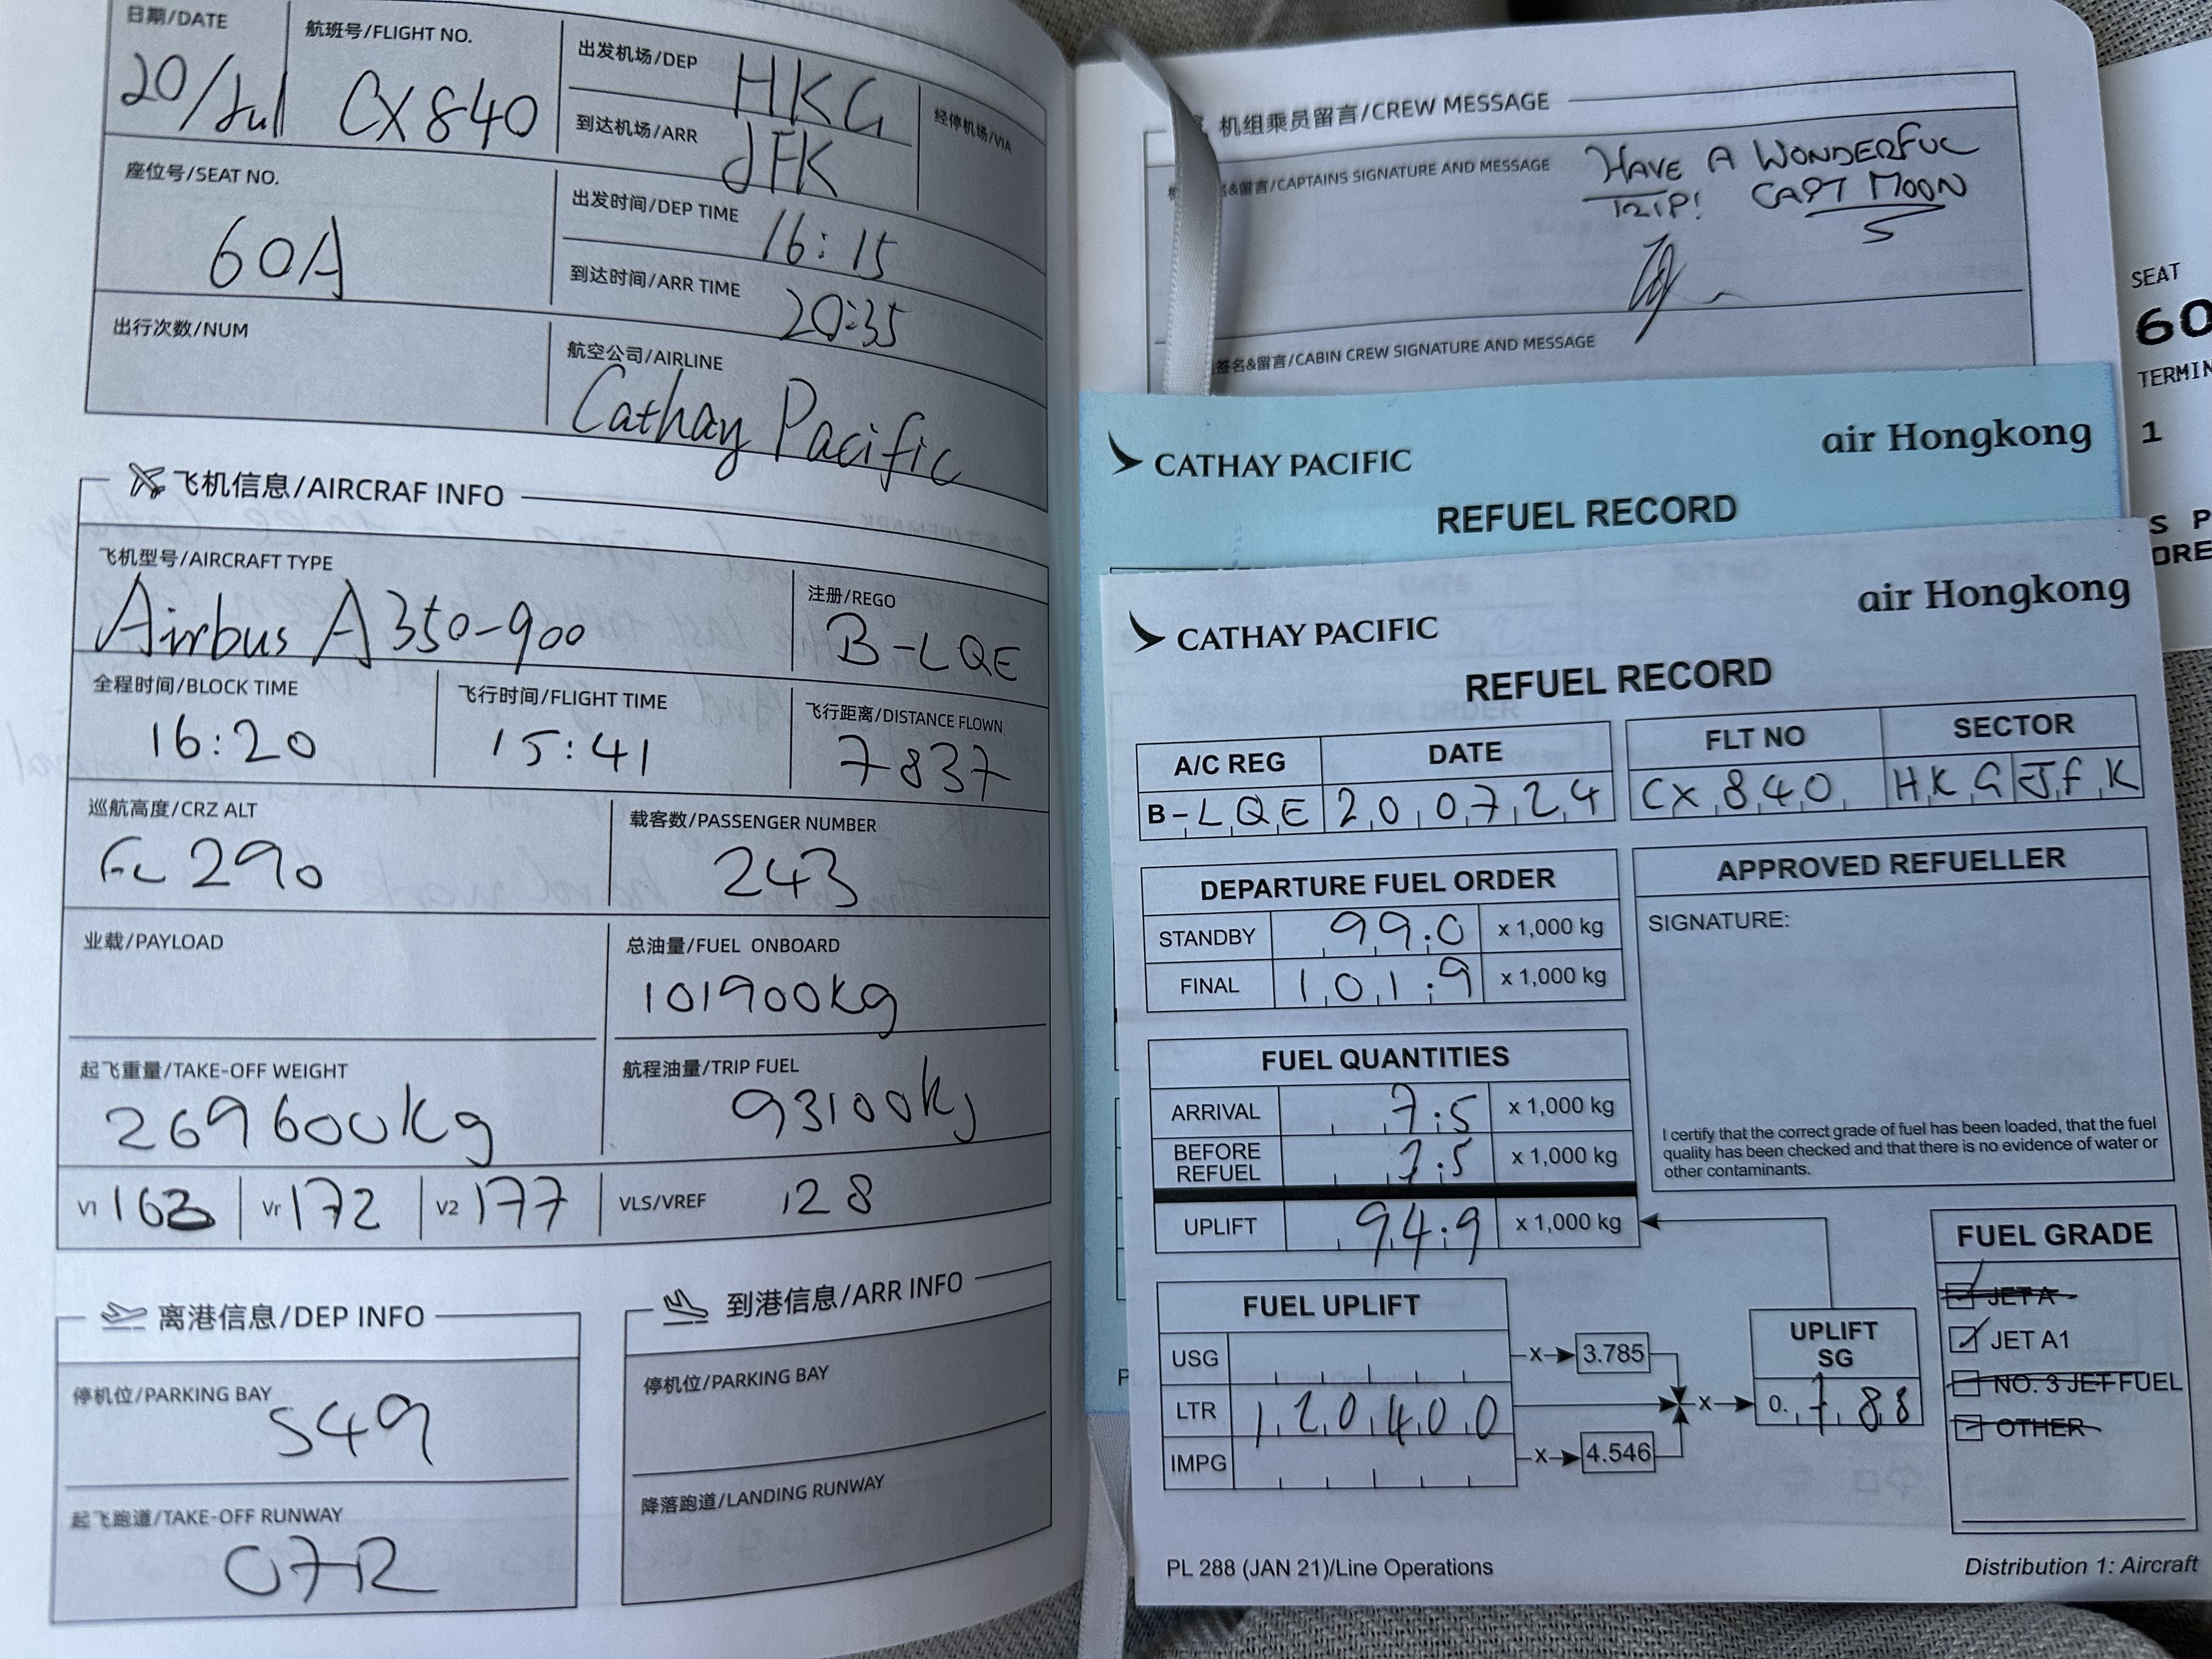 日期/DATE
20/Jul
航班号/FLIGHT NO.
CX840
出发机场/DEP
HKG
到达机场/ARR
JFK
经停机场/VIA
座位号/SEAT NO.
60A
出发时间/DEP TIME
16:15
到达时间/ARR TIME
20:35
出行次数/NUM
航空公司/AIRLINE
Cathay Pacific
飞机信息/AIRCRAF INFO
飞机型号/AIRCRAFT TYPE
Airbus A350-900
注册/REGO
B-LQE
全程时间/BLOCK TIME
16:20
飞行时间/FLIGHT TIME
15:41
飞行距离/DISTANCE FLOWN
7837
巡航高度/CRZ ALT
FL 290
载客数/PASSENGER NUMBER
243
业载/PAYLOAD
总油量/FUEL ONBOARD
101900kg
起飞重量/TAKE-OFF WEIGHT
269600kg
航程油量/TRIP FUEL
93100kg
V1 163
Vr 172
V2 177
VLS/VREF 128
离港信息/DEP INFO
停机位/PARKING BAY
S49
起飞跑道/TAKE-OFF RUNWAY
07R
到港信息/ARR INFO
停机位/PARKING BAY
降落跑道/LANDING RUNWAY
机组乘员留言/CREW MESSAGE
名&留言/CAPTAINS SIGNATURE AND MESSAGE
HAVE A WONDERFUL
TRIP! CAPT MOON
签名&留言/CABIN CREW SIGNATURE AND MESSAGE
CATHAY PACIFIC
air Hongkong
REFUEL RECORD
CATHAY PACIFIC
air Hongkong
REFUEL RECORD
A/C REG DATE FLT NO SECTOR
B-LQE 200724 CX840 HKG JFK
DEPARTURE FUEL ORDER
STANDBY 99.0 x 1,000 kg
FINAL 101.9 x 1,000 kg
APPROVED REFUELLER
SIGNATURE:
I certify that the correct grade of fuel has been loaded, that the fuel
quality has been checked and that there is no evidence of water or
other contaminants.
FUEL QUANTITIES
ARRIVAL 7.5 x 1,000 kg
BEFORE REFUEL 7.5 x 1,000 kg
UPLIFT 94.9 x 1,000 kg
FUEL UPLIFT
USG x 3.785
LTR 120400 x
IMPG x 4.546
UPLIFT
SG
0.788
FUEL GRADE
JET A
JET A1
NO. 3 JET FUEL
OTHER
PL 288 (JAN 21)/Line Operations
Distribution 1: Aircraft
SEAT
60
TERMIN
1
S P
ORE